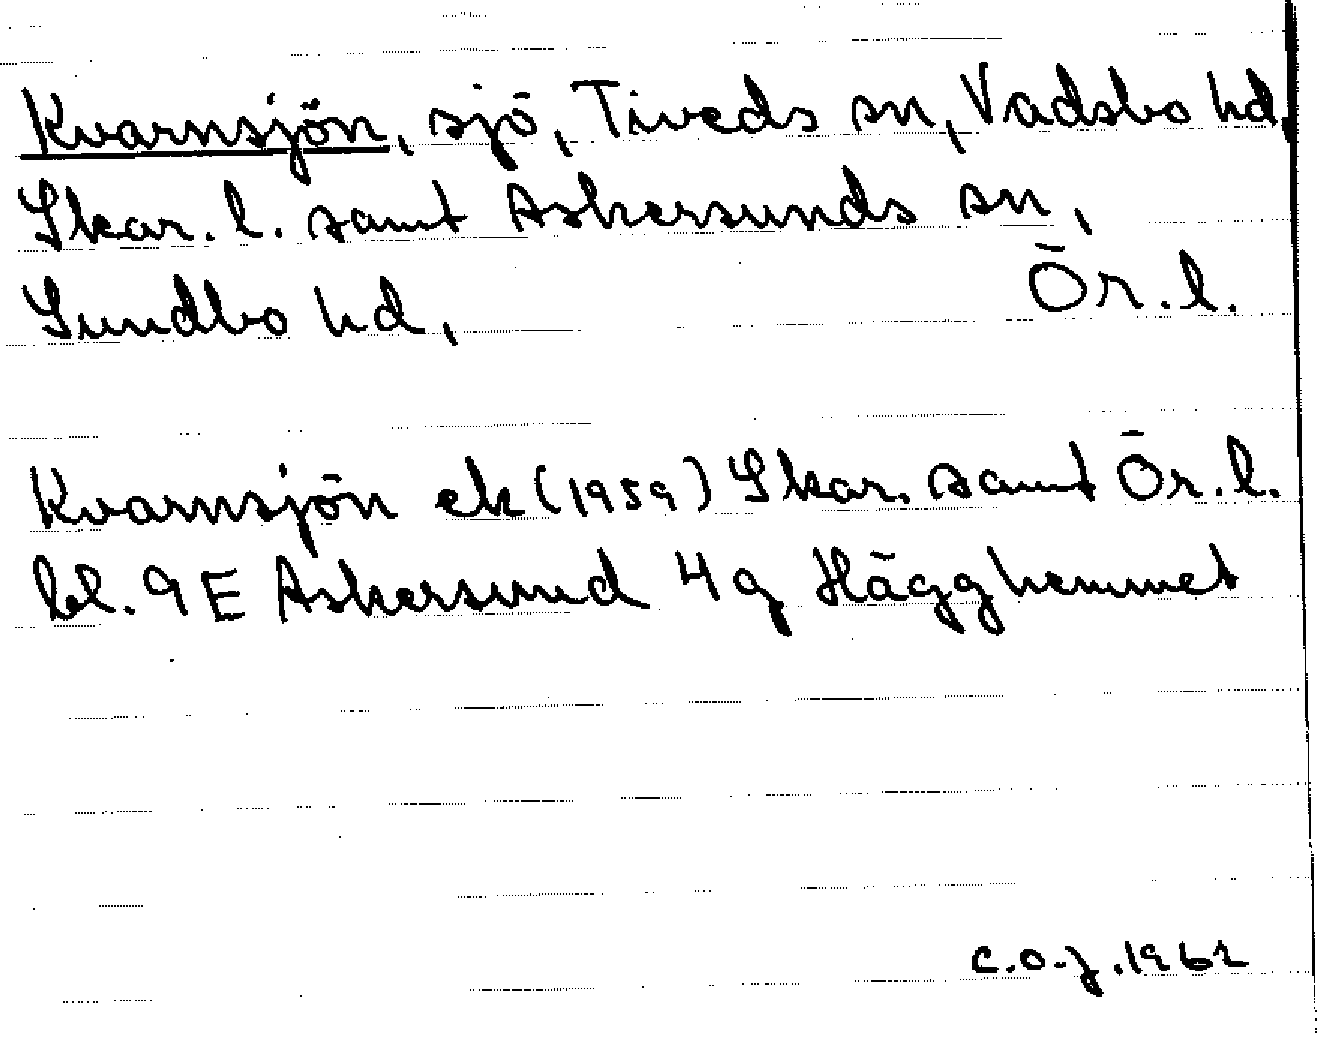 Kvarnsjön, sjö, Tiveds sn, Vadsbo hd,
Skar. l. samt Askersunds sn,
Sundbo hd, Ör. l.
Kvarnsjön ek (1959) Skar. samt Ör. l.
bl. 9 E Askersund 4 g Hägghemmet
C.O.J. 1962